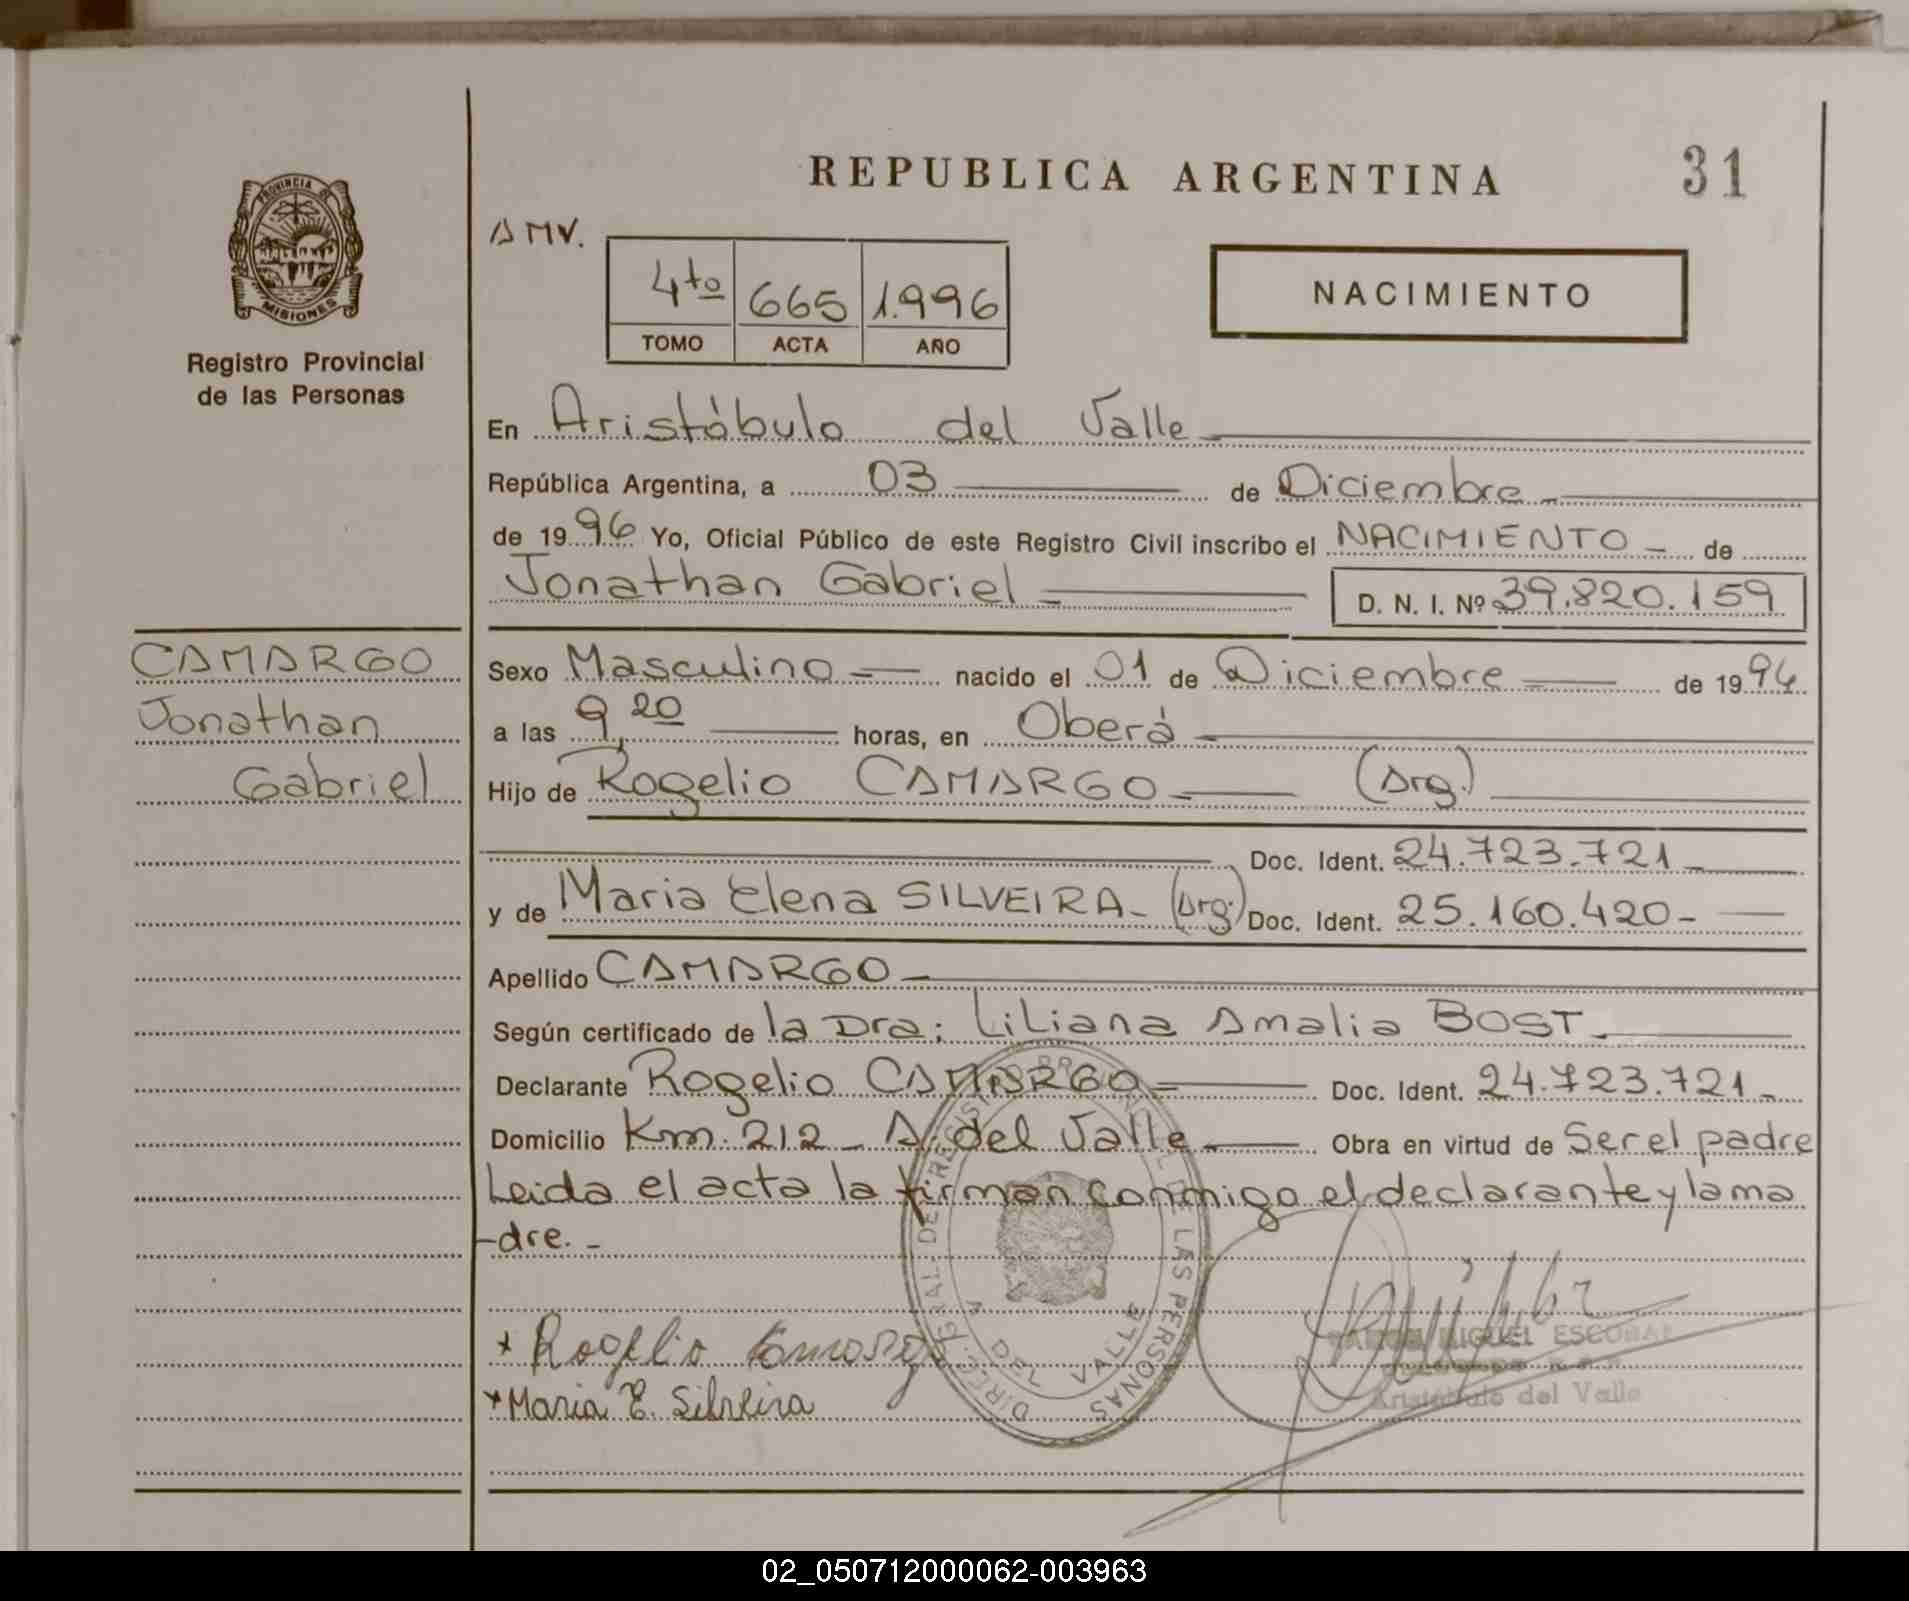 REPUBLICA ARGENTINA
31
PROVINCIA DE
MISIONES
Registro Provincial
de las Personas
AMV.
4to 665 1.996
TOMO ACTA AÑO
NACIMIENTO
En Aristóbulo del Valle
República Argentina, a 03 de Diciembre
de 1996 Yo, Oficial Público de este Registro Civil inscribo el NACIMIENTO de
Jonathan Gabriel D. N. I. Nº 39.820.159
CAMARGO
Jonathan
Gabriel
Sexo Masculino nacido el 01 de Diciembre de 1996
a las 9,20 horas, en Oberá
Hijo de Rogelio CAMARGO (Arg.)
Doc. Ident. 24.723.721
y de Maria Elena SILVEIRA (Arg.) Doc. Ident. 25.160.420
Apellido CAMARGO
Según certificado de la Dra; Liliana Amalia BOST
Declarante Rogelio CAMARGO Doc. Ident. 24.723.721
Domicilio Km. 212 - A. del Valle Obra en virtud de Ser el padre
Leida el acta la firman conmigo el declarante y la ma
-dre.-
DIREC. GRAL. DEL REGISTRO PROVINCIAL DE LAS PERSONAS
A DEL VALLE
Rogelio Camargo
Maria E. Silveira
MIGUEL ESCOBAR
Aristóbulo del Valle
02_050712000062-003963